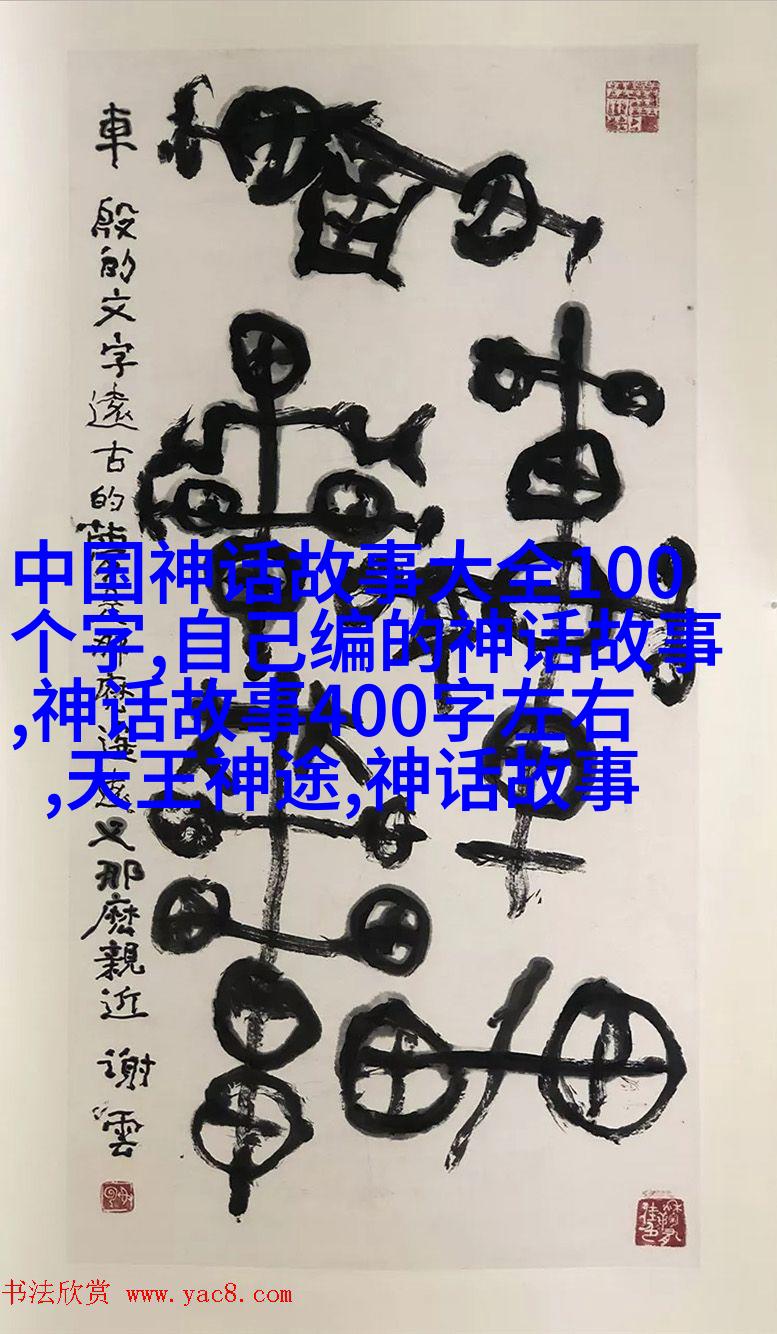 車 殷的文字遠古的
那麽遥遠又那麽親近 謝雲
中国神话故事大全100
个字,自己编的神话故事
,神话故事400字左右
,天王神途,神话故事
书法欣赏 www.yac8.com